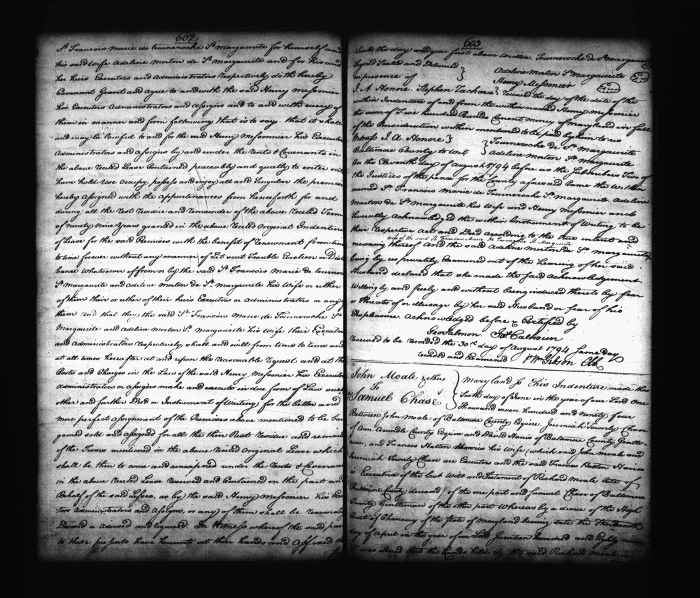 602
St. Francois Marie de Tourneroche St. Marguerite for himself and
his said Wife Adeline Moton de St. Marguerite and for his and
her heirs Executors and Administrators respectively do th hereby
Covenant Grant and agree to and with the said Henry Messonier
his Executors Administrators and assigns and to and with every of
them in manner and form following that is to say that it shall
and may be lawful to and for the said Henry Messonier his Executors
Administrators and assigns by and under the Rents & Covenants in
the above recited Lease Contained peaceably and quietly to enter into
have hold use occupy possess and enjoy all and Singular the premises
hereby assigned with the Appurtenances from henceforth for and
during all the rest residue and remainder of the above recited Term
of Ninety nine years granted in the above recited Original Indenture
of Lease for the said Premises with the benefit of renewal from time
to time forever without any manner of Let suit Trouble Eviction
whatsoever of from or by the said St. Francois Marie de
St. Marguerite and Adeline Moton de St. Marguerite his Wife or either
of them their or either of their heirs Executors or Administrators or any
them and that they the said St. Francois Marie de Tourneroche St.
Marguerite and Adeline Moton St. Marguerite his Wife their Executors
and Administrators respectively shall and will from time to time and
at all times hereafter at and upon the reasonable request and at the
Costs and Charges in the Law of the said Henry Messonier his Executors
Administrators or assigns make and execute in due form of Law
other and further Deed or Instrument of Writing for the better and
more perfect Assignment of the Premises above mentioned to be bar
gained sold and assigned for all the then Rest Residue and remain
of the Term mentioned in the above recited Original Lease which
shall be then to come and unexpired under the Rents & Covenants
in the above recited Lease reserved and Contained on the part and
behalf of the said Lessee, as by the said Henry Messonier his Execu
tors Administrators and Assigns, or any of them shall be reasonably
Devised or advised and required. In Witness whereof the said parties
to these presents have hereunto set their hands and affixed
603
Seals the day and year first above written Tourneroche de St. Marguerite
Signed Sealed and Delivered
in presence of
Adeline Moton St. Marguerite
Henry Messonier
J. A. Honore Stephen Zacharie
received the day of the date of the
within Indenture of and from the within named Henry Messonier
the sum of Four hundred Pounds Current money of Maryland in full
of the Consideration within mentioned to be paid by him to us
Witness J. A. Honore
Tourneroche de St. Marguerite
Adeline Moton St. Marguerite
Baltimore County to Wit
On the Eleventh day of August 1794 before us the Subscribers Two of
the Justices of the peace for the County aforesaid came the within
named St. Francois Marie de Tourneroche St. Marguerite Adeline
Moton de St. Marguerite his Wife and Henry Messonier and
severally Acknowledged the within Instrument of Writing to be
their respective Act and Deed according to the true intent and
meaning thereof and the said Adeline Moton de St. Marguerite
being by us privately Examined out of the hearing of her said
Husband declared that she made the said acknowledgment
Willingly and freely and without being induced thereto by fear
or threats of or ill usage by her said Husband or fear of his
displeasure. Acknowledged before & Certified by
Geo Salmon Jas. Calhoun
received to be recorded the 30th day of August 1794 Same day
recorded and Examined Wm. Gibson Clk
John Moale & others
To
Samuel Chase
Maryland ss. This Indenture made this
Sixth day of June in the year of our Lord One
thousand seven hundred and Ninety four
Between John Moale of Baltimore County Esquire Jeremiah Townly Chase
of Ann Arundel County Esquire and David Harris of Baltimore County Gentle
man, and Frances Holton Harris his Wife (which said John Moale and
Jeremiah Townly Chase are Executors and the said Frances Holton Harris
is Executrix of the last Will and Testament of Richard Moale late of
Baltimore County deceased) of the one part and Samuel Chase of Baltimore
County Gentleman of the other part Whereas by a decree of the High
Court of Chancery of the State of Maryland bearing date the
day of April in the year of our Lord Seventeen hundred and Eighty